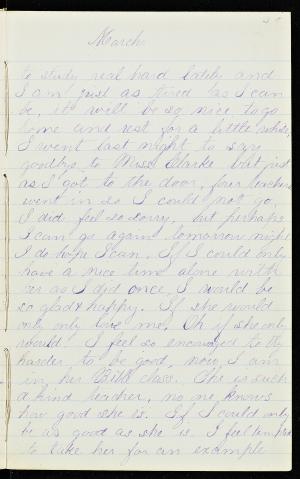 March
to study real hard lately and
I am just as tired as I can
be, it will be so nice to go
home and rest for a little while,
I went last night to say
goodbye to Miss Clarke but just
as I got to the door, four teachers
went in so I could not go,
I did feel so sorry, but perhaps
I can go again tomorrow night
I do hope I can. If I could only
have a nice time alone with
her as I did once, I would be
so glad & happy. If she would
only only love me, Oh if she only
would. I feel so encouraged to try
harder to be good, now I am
in her Bible class. She is such
a kind teacher, no one knows
how good she is. If I could only
be as good as she is. I feel
to take her for an example